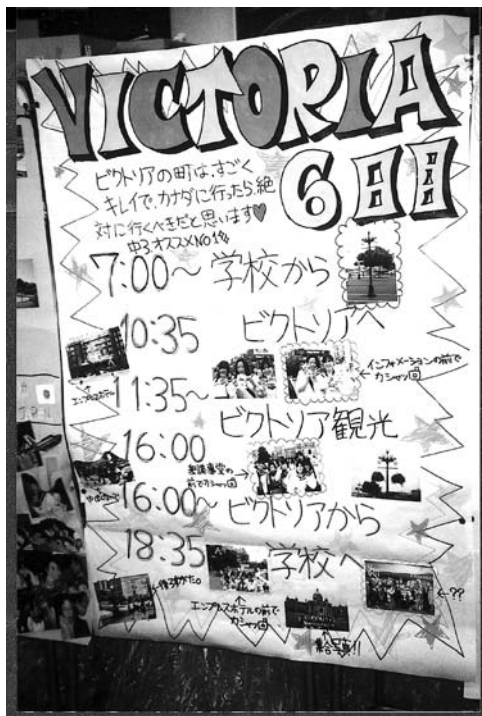 VICTORIA
6日目
ビクトリアの町は、すごく
キレイで、カナダに行ったら、絶
対に行くべきだと思います♥
中3オススメNO1
7:00〜 学校から
10:35 ビクトリアへ
インフォメーションの前で
カシャッ
エンプレスホテル
11:35〜
ビクトリア観光
16:00
州議事堂の
前でカシャッ
16:00〜
ビクトリアから
18:35 学校へ
エンプレスホテルの前で
カシャッ
集合写真!!
←??